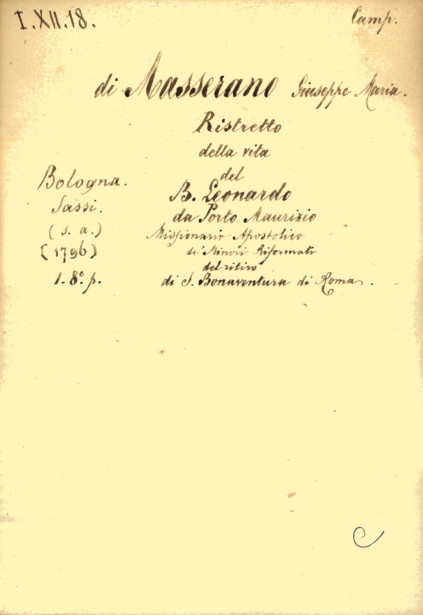 I.XII.18. Camp.
di Masserano Giuseppe Maria.
Ristretto
della vita
del
Bologna. B. Leonardo
Sassi. da Porto Maurizio
(s. a.) Missionario Apostolico
(1796) de' Minori Riformati
del ritiro
1. 8°. p. di S. Bonaventura di Roma.
C